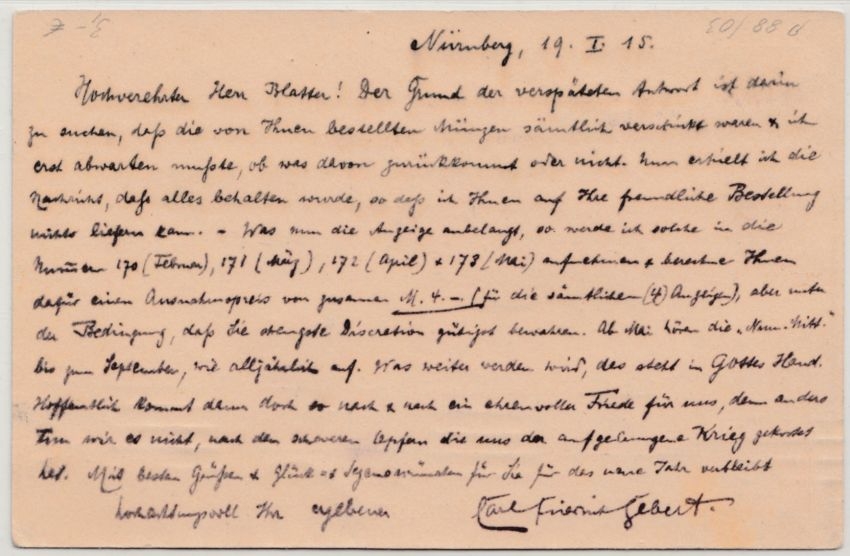 Nürnberg, 19. I. 15.
Hochverehrter Herr Blatter! Der Grund der verspäteten Antwort ist darin
zu suchen, daß die von Ihnen bestellten Münzen sämtlich verschickt waren & ich
erst abwarten mußte, ob was davon zurückkommt oder nicht. Nun erhielt ich die
Nachricht, daß alles behalten wurde, so daß ich Ihnen auf Ihre freundliche Bestellung
nichts liefern kann. – Was nun die Anzeige anbelangt, so werde ich solche in die
Nummern 170 (Februar), 171 (März), 172 (April) & 173 (Mai) aufnehmen & berechne Ihnen
dafür einen Ausnahmspreis von zusammen M. 4.– (für die sämtlichen (4) Anzeigen), aber unter
der Bedingung, daß Sie strengste Discretion gütigst bewahren. Ab Mai hören die „Num. Mitt."
bis zum September, wie alljährlich auf. Was weiter werden wird, das steht in Gottes Hand.
Hoffentlich kommt dann doch so nach & nach ein ehrenvoller Friede für uns, denn anders
tun wir es nicht, nach den schweren Opfern die uns der aufgezwungene Krieg gekostet
hat. Mit besten Grüßen & Glück- & Segenswünschen für Sie für das neue Jahr verbleibt
hochachtungsvoll Ihr ergebener Karl Friedrich Gebert.